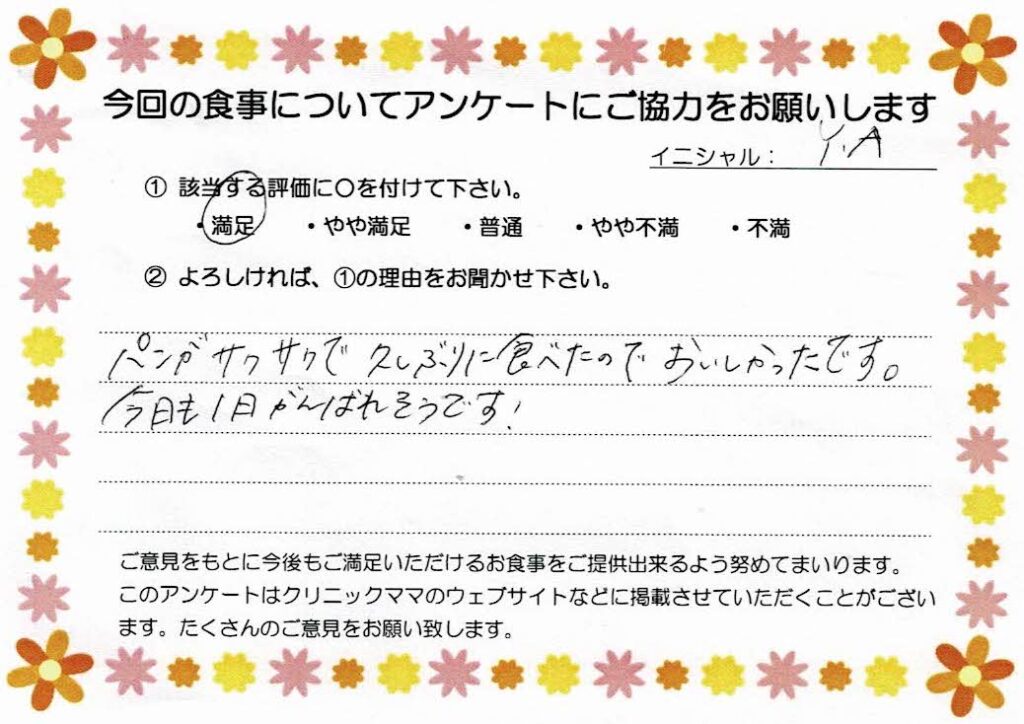 今回の食事についてアンケートにご協力をお願いします
イニシャル： Y.A
① 該当する評価に〇を付けて下さい。
・満足 ・やや満足 ・普通 ・やや不満 ・不満
② よろしければ、①の理由をお聞かせ下さい。
パンがサクサクで久しぶりに食べたのでおいしかったです。
今日も1日がんばれそうです!
ご意見をもとに今後もご満足いただけるお食事をご提供出来るよう努めてまいります。
このアンケートはクリニックママのウェブサイトなどに掲載させていただくことがござい
ます。たくさんのご意見をお願い致します。